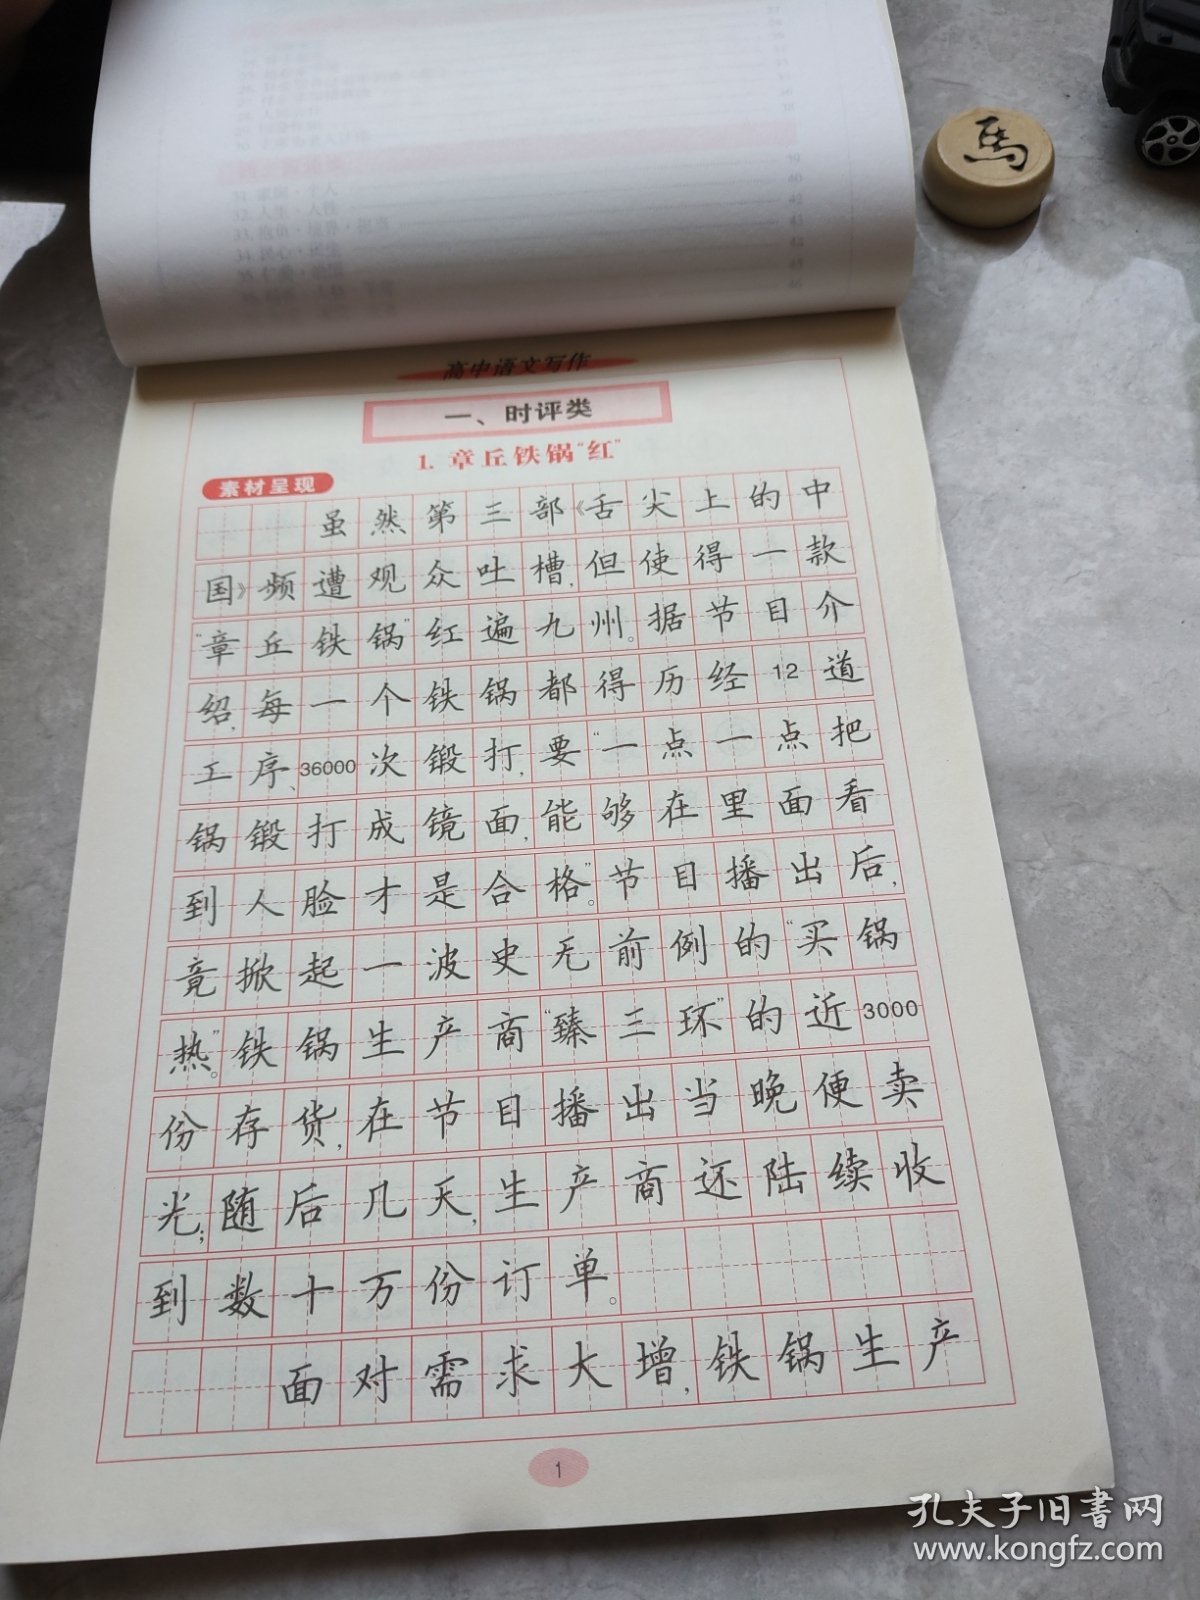 馬
37
38
39
40
42
43
44
45
46
高中语文写作
一、时评类
1. 章丘铁锅“红”
素材呈现
虽然第三部《舌尖上的中
国》频遭观众吐槽,但使得一款
“章丘铁锅”红遍九州。据节目介
绍,每一个铁锅都得历经12道
工序、36000次锻打,要“一点一点把
锅锻打成镜面,能够在里面看
到人脸才是合格”。节目播出后,
竟掀起一波史无前例的“买锅
热”。铁锅生产商“臻三环”的近3000
份存货,在节目播出当晚便卖
光;随后几天,生产商还陆续收
到数十万份订单。
面对需求大增,铁锅生产
1
孔夫子旧书网
www.kongfz.com